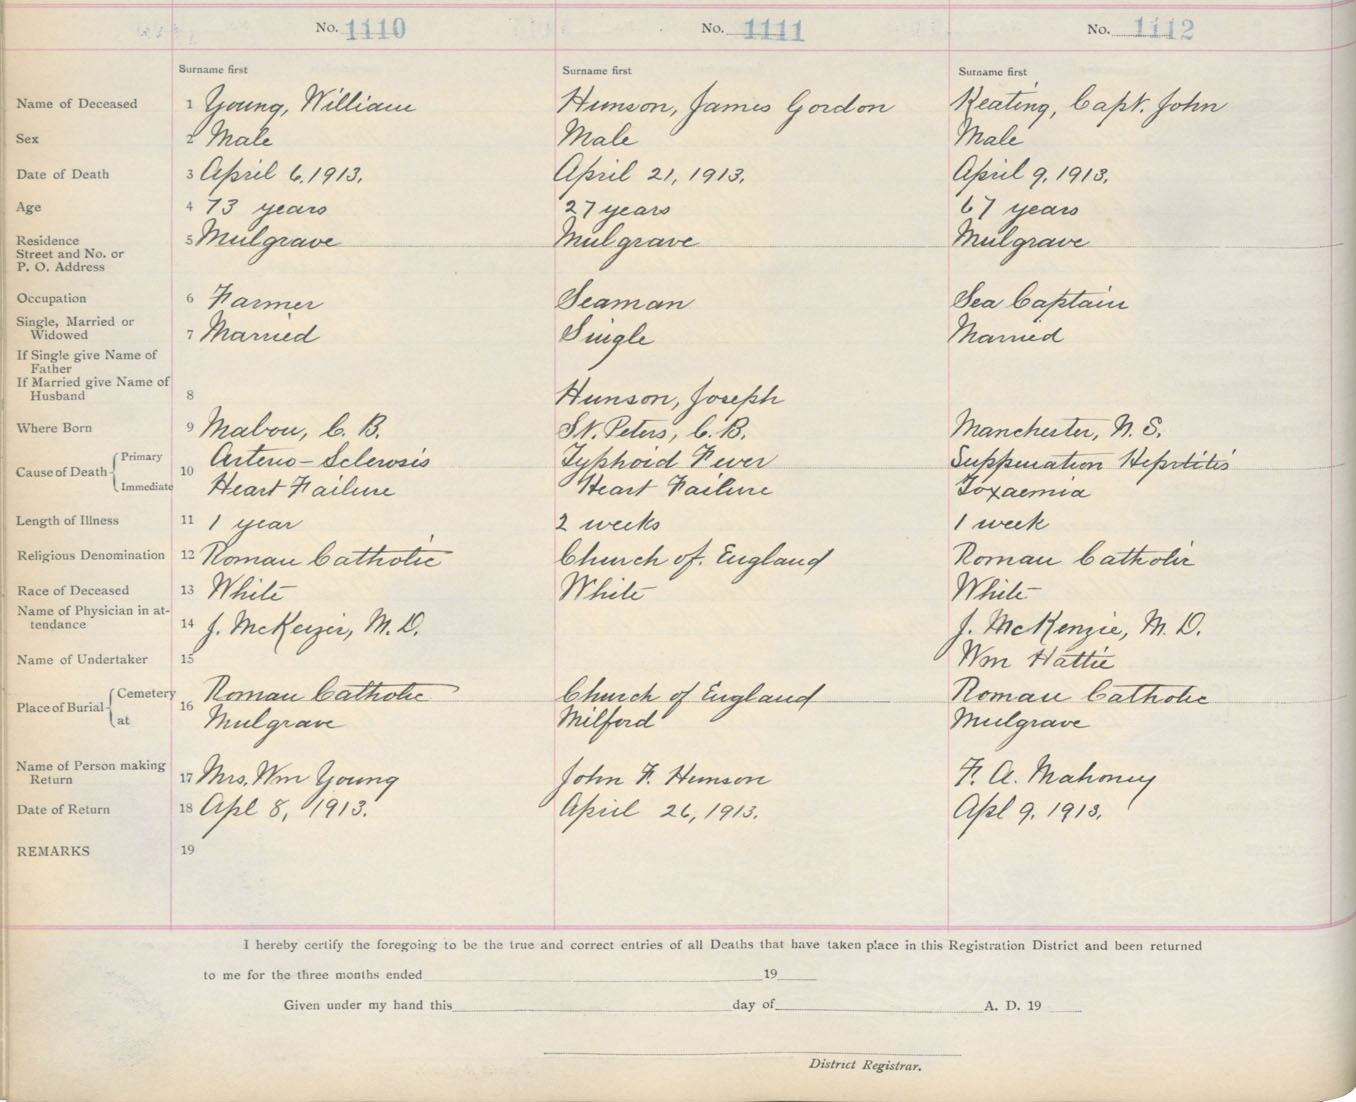 No. 1110 No. 1111 No. 1112
Surname first Surname first Surname first
Name of Deceased 1 Young, William Hunson, James Gordon Keating, Capt. John
Sex 2 Male Male Male
Date of Death 3 April 6, 1913. April 21, 1913. April 9, 1913.
Age 4 73 years 27 years 67 years
Residence 5 Mulgrave Mulgrave Mulgrave
Street and No. or
P. O. Address
Occupation 6 Farmer Seaman Sea Captain
Single, Married or
Widowed 7 Married Single Married
If Single give Name of
Father
If Married give Name of
Husband 8 Hunson, Joseph
Where Born 9 Mabou, C. B. St. Peters, C. B. Manchester, N. S.
Cause of Death Primary 10 Arterio-Sclerosis Typhoid Fever Suppuration Heptitis
Immediate Heart Failure Heart Failure Toxaemia
Length of Illness 11 1 year 2 weeks 1 week
Religious Denomination 12 Roman Catholic Church of England Roman Catholic
Race of Deceased 13 White White White
Name of Physician in at-
tendance 14 J. McKenzie, M. D. J. McKenzie, M. D.
Name of Undertaker 15 Wm Hattie
Place of Burial Cemetery 16 Roman Catholic Church of England Roman Catholic
at Mulgrave Milford Mulgrave
Name of Person making
Return 17 Mrs. Wm Young John F. Hunson F. A. Mahoney
Date of Return 18 Apl 8, 1913. April 26, 1913. Apl 9, 1913.
REMARKS 19
I hereby certify the foregoing to be the true and correct entries of all Deaths that have taken place in this Registration District and been returned
to me for the three months ended 19
Given under my hand this day of A. D. 19
District Registrar.